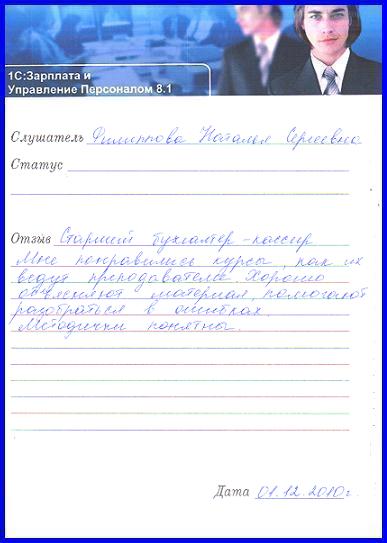 1С:Зарплата и
Управление Персоналом 8.1
Слушатель Филиппова Наталья Сергеевна
Статус
Отзыв Старший бухгалтер-кассир
Мне понравились курсы, как их
ведут преподаватели. Хорошо
объясняют материал, помогают
разобраться в ошибках.
Методички понятны.
Дата 01.12.2010г.